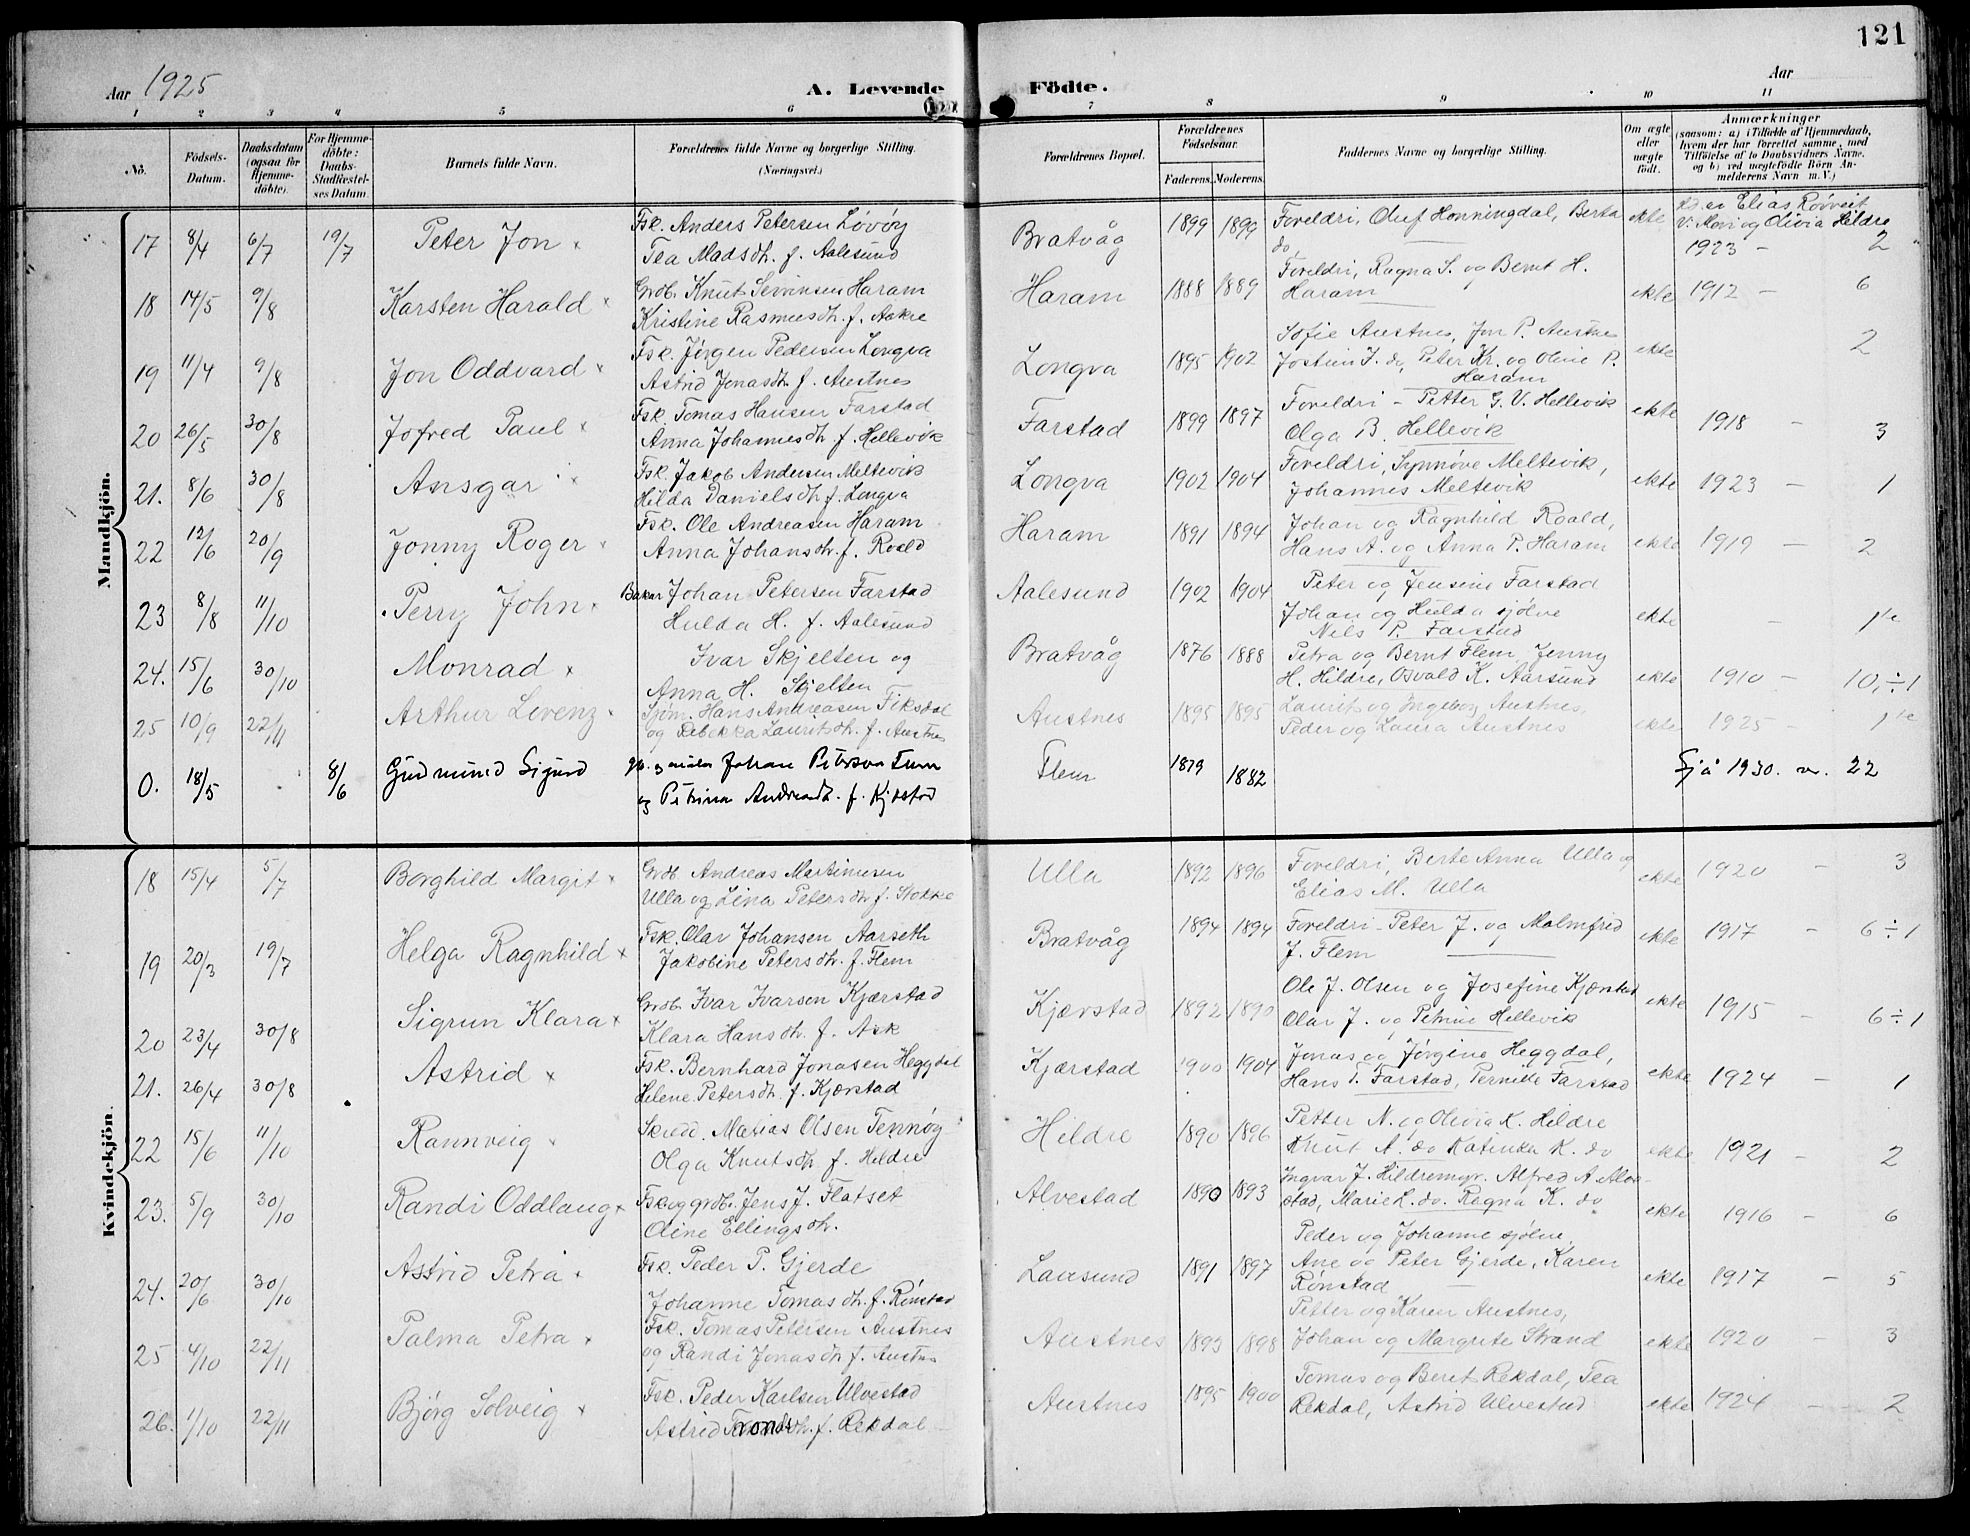 121
Aar 1925
A. Levende
Födte.
Aar
1 2 3 4 5 6 7 8 9 10 11
No.
Födsels-Datum.
Daabsdatum (ogsaa for Hjemmedöbte).
For Hjemmedöbte: Daabs-Stadfæstelses Datum.
Barnets fulde Navn.
Forældrenes fulde Navne og borgerlige Stilling. (Næringsvei.)
Forældrenes Bopæl.
Forældrenes Födselsaar.
Faderens. Moderens.
Faddernes Navne og borgerlige Stilling.
Om ægte eller uægte födt.
Anmærkninger
(saasom: a) i Tilfælde af Hjemmedaab, hvem der har forrettet samme, med Tilföielse af to Daabsvidners Navne, og b) ved uægtefödte Börn Anmelderens Navn m. V.)
Mandkjön.
17 8/4 6/7 19/7 Peter Jon Fsk. Anders Petersen Lövög
Tea Madsdtr. f. Aalesund Bratvåg 1899 1899 Foreldri, Oluf Honningdal, Berta do ekte Elias Rövveit
V: Mari og Olivia Hildre
1923 – 2
18 14/5 9/8 Karsten Harald Grdb. Knut Severinsen Haram
Kristine Rasmusdtr. f. Aakre Haram 1888 1889 Foreldri, Ragna S. og Bernt H.
Haram ekte 1912 – 6
19 11/4 9/8 Jon Oddvard Fsk. Jørgen Pedersen Longva
Astrid Jonasdtr. f. Austnes Longva 1895 1902 Sofie Austnes, Jon P. Austnes
Jostein J. do, Peter Kr. og Oline P.
Haram ekte 2
20 26/5 30/8 Jofred Paul Fsk Tomas Hansen Farstad
Anna Johannesdtr. f. Hellevik Farstad 1899 1897 Foreldri – Petter G. V. Hellevik
Olga B. Hellevik ekte 1918 – 3
21. 8/6 30/8 Ansgar Fsk. Jakob Andersen Meltevik
Hilda Danielsdtr. f. Longva Longva 1902 1904 Foreldri, Synnöve Meltevik,
Johannes Meltevik ekte 1923 – 1
22 12/6 20/9 Jonny Roger Fsk. Ole Andreasen Haram
Anna Johansdtr. f. Roald Haram 1891 1894 Johan og Ragnhild Roald,
Hans A. og Anna P. Haram ekte 1919 – 2
23 8/8 11/10 Perry John Baker Johan Petersen Farstad
Hulda H. f. Aalesund Aalesund 1902 1904 Peter og Jensine Farstad
Johan og Hulda sjølve
Nels P. Farstad ekte – 1te
24. 15/6 30/10 Monrad Ivar Skjelten og
Anna H. Skjelten Bratvåg 1876 1888 Petra og Bernt Flem Jenny
H. Hildre, Osvald K. Aarsund ekte 1910 – 10,÷1
25 10/9 22/11 Arthur Lorenz Sjøm. Hans Andreasen Fiksdal
og Rebekka Lauritsdtr. f. Austnes Austnes 1895 1895 Laurits og Ingeborg Austnes,
Peder og Laura Austnes ekte 1925 1te
0. 18/5 8/6 Gudmund Sigurd Johan Peterson Flem
og Petrina Andreasdtr. f. Kjerstad Flem 1879 1882 Sjå 1930. nr. 22
Kvindekjön.
18 15/4 5/7 Borghild Margit Grdb Andreas Martinusen
Ulla og Lina Petersdtr. f. Stokke Ulla 1892 1896 Foreldri, Berte Anna Ulla og
Elias M. Ulla ekte 1920 – 3
19 20/3 19/7 Helga Ragnhild Fsk. Olav Johansen Aarseth
Jakobine Petersdtr. f. Flem Bratvåg 1894 1894 Foreldri – Peter J. og Malmfrid
J. Flem ekte 1917 – 6÷1
20 23/4 30/8 Sigrun Klara Grdb. Ivar Ivarsen Kjærstad
Klara Hansdtr. f. Ask Kjærstad 1892 1890 Ole J. Olsen og Josefine Kjærstad
Olav J. og Petrine Hellevik ekte 1915 – 6÷1
21. 26/4 30/8 Astrid Fsk. Bernhard Jonasen Heggdal
Helene Petersdtr. f. Kjærstad Kjærstad 1900 1904 Jonas og Jørgine Heggdal,
Hans T. Farstad, Pernille Farstad ekte 1924 – 1
22 15/6 11/10 Rannveig Skredd. Matias Olsen Tennøy
Olga Knutsdtr. f. Hildre Hildre 1890 1896 Petter N. og Olivia K. Hildre
Knut A. do Katinka K. do ekte 1921 – 2
23. 5/9 30/10 Randi Oddlaug Fsk og grdb. Jens J. Flatset
Oline Ellingsdtr. Alvestad 1890 1893 Ingvar J. Hildremyr. Alfred A Alve-
stad, Marie L. do. Ragna K. do ekte 1916 – 6
24. 20/6 30/10 Astrid Petra Fsk. Peder P. Gjerde
Johanne Tomasdtr. f. Rønstad Lausund 1891 1897 Peder og Johanne sjølve,
Ane og Peter Gjerde, Karen
Rønstad ekte 1917 – 5
25 4/10 22/11 Palma Petra Fsk. Tomas Petersen Austnes
og Randi Jonasdtr. f. Austnes Austnes 1893 1898 Petter og Karen Austnes,
Johan og Margrete Strand ekte 1920 – 3
26. 1/10 22/11 Bjørg Solveig Fsk. Peder Karlsen Ulvestad
Astrid Tronsdtr. f. Rekdal Austnes 1895 1900 Tomas og Beret Rekdal, Tea
Rekdal, Astrid Ulvestad ekte 1924 – 2